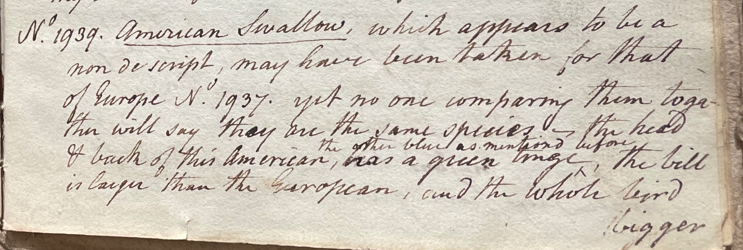 No. 1939. American Swallow, which appears to be a
non descript, may have been taken for that
of Europe No. 1937. yet no one comparing them toga-
ther will say they are the same species – the head
the other blue as mentioned before
& back of this American, has a green tinge, the bill
is larger than the European, and the whole bird
bigger